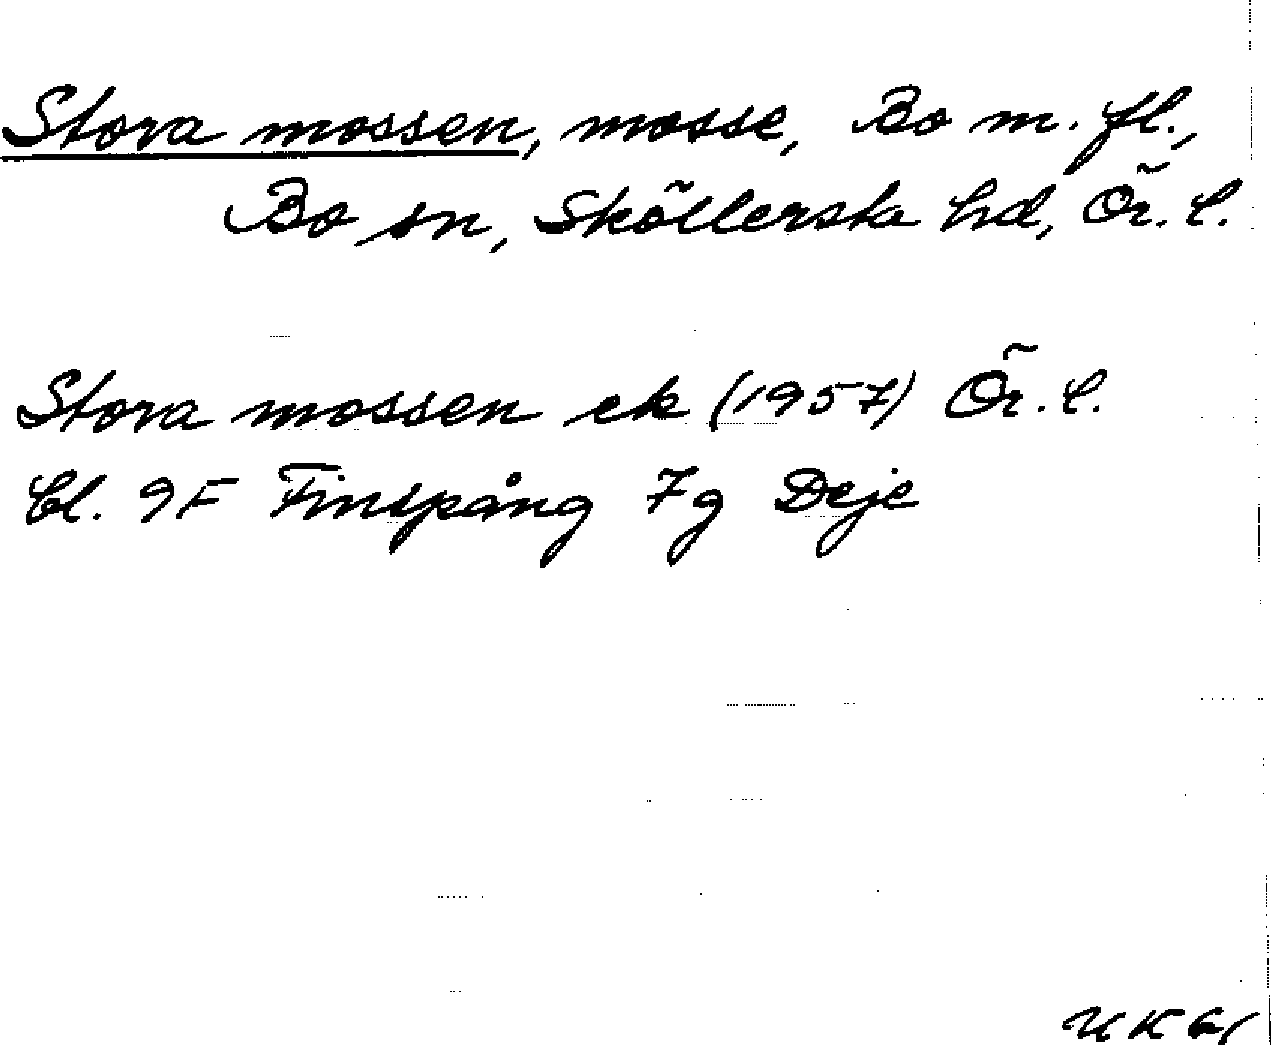 Stora mossen, mosse, Bo m. fl.,
Bo sn, Sköllerska hd, Ör. l.
Stora mossen ek (1957) Ör. l.
Bl. 9F Finspång 7g Deje